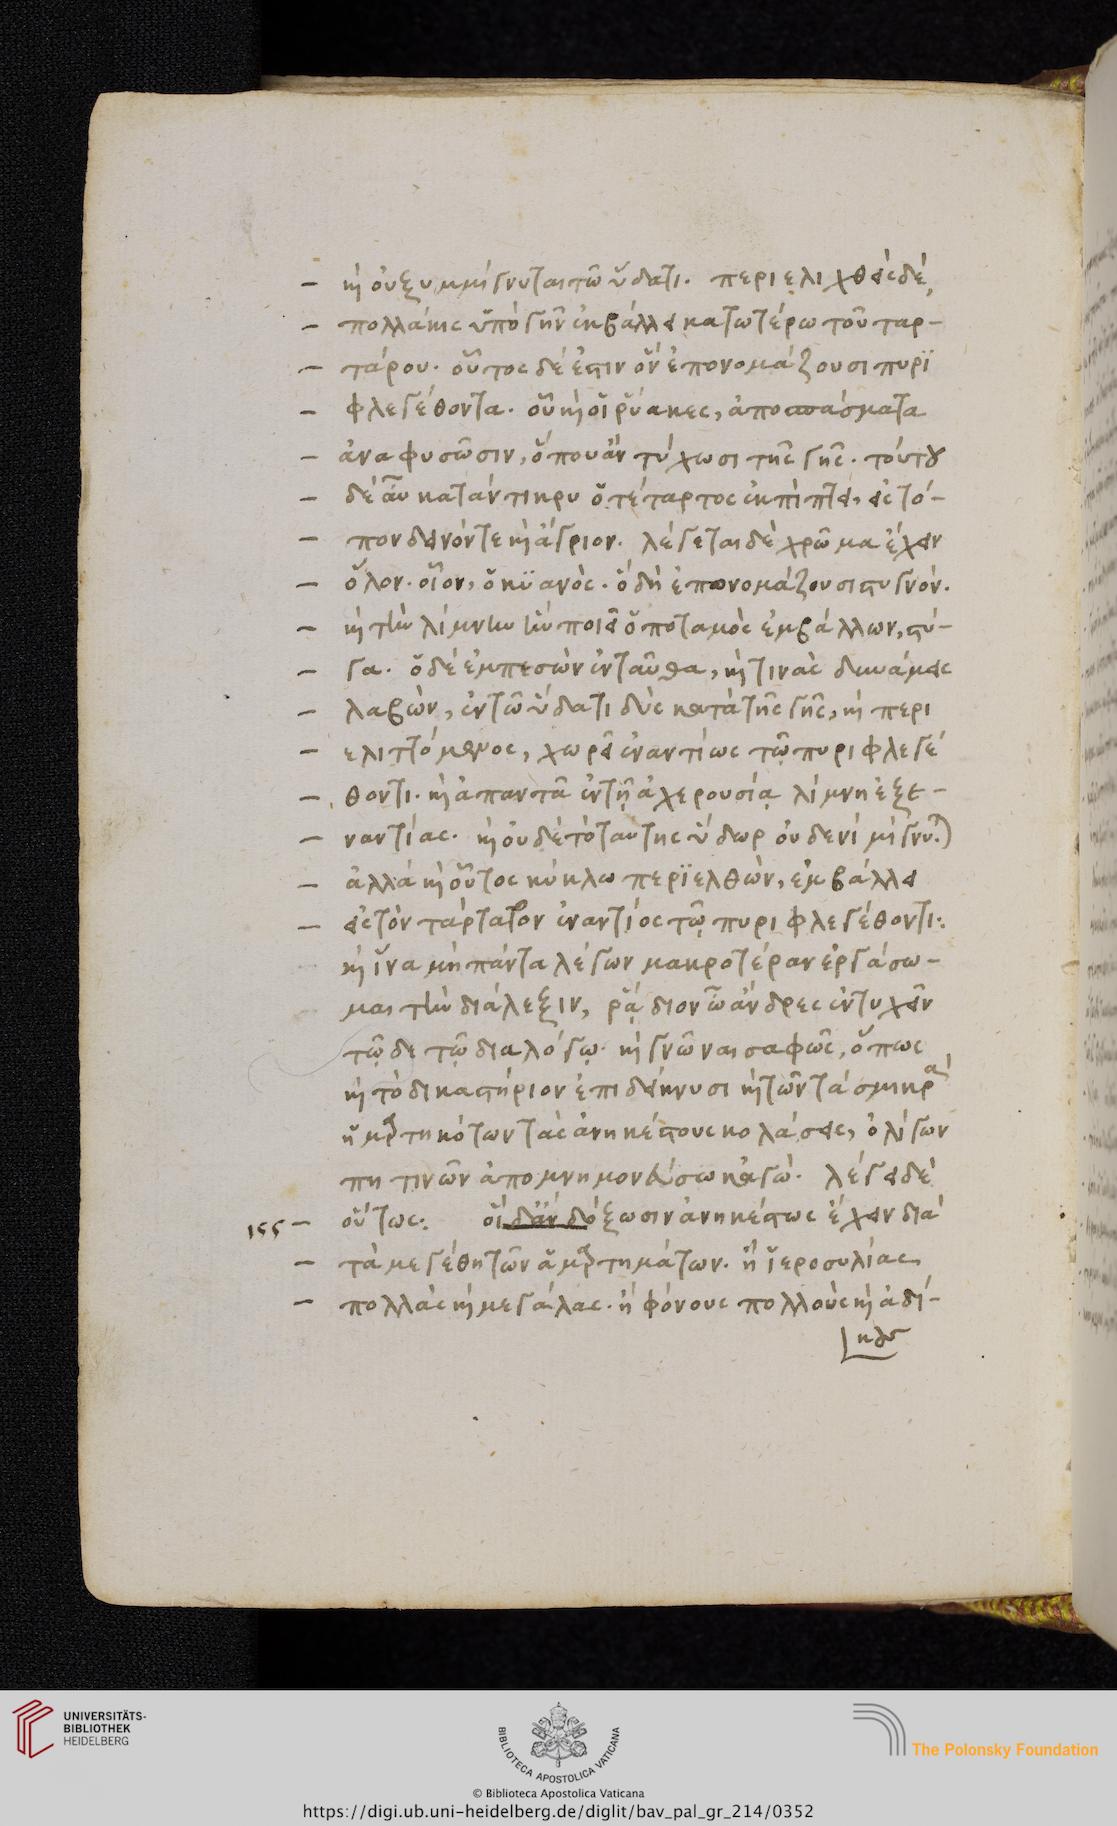 — καὶ οὐ ξυμμίγνυται τῶ ὕδατι. περιελιχθεὶς δὲ,
— πολλάκις ὑπὸ γῆν ἐκβάλλει κατωτέρω τοῦ ταρ-
— τάρου. οὗτος δέ ἐστιν ὃν ἐπονομάζουσι πυρϊ
— φλεγέθοντα. οὗ καὶ οἱ ῥύακες, ἀποσπάσματα
— ἀναφυσῶσιν, ὅπου ἂν τύχωσι τῆς γῆς. τούτου
— δὲ αὖ καταντικρυ ὁ τέταρτος ἐκπίπτει, εἰς τό-
— πον δεινόν τε καὶ ἄγριον. λέγεται δὲ χρῶμα ἔχειν
— ὅλον. οἷον, ὁ κϋανός. ὃ δὴ ἐπονομάζουσι στυγνόν.
— καὶ τὴν λίμνην ἣν ποιεῖ ὁ ποταμὸς ἐμβάλλων, στύ-
— γα. ὁ δὲ ἐμπεσὼν ἐνταῦθα, καὶ τινὰς δυνάμεις
— λαβὼν, ἐν τῶ ὕδατι δὺς κατὰ τῆς γῆς, καὶ περι
— ελιττόμενος, χωρεῖ ἐναντίως τῷ πυριφλεγέ
— θοντι. καὶ ἀπαντᾶ ἐν τῇ ἀχερουσίᾳ λίμνη ἐξ ε-
— ναντίας. καὶ οὐδὲ τὸ ταύτης ὕδωρ οὐδενὶ μίγνυται
— ἀλλὰ καὶ οὗτος κύκλω περϊελθὼν, ἐμβάλλει
— εἰς τὸν τάρταρον ἐναντίος τῷ πυριφλεγέθοντι:
καὶ ἵνα μὴ πάντα λέγων μακροτέραν ἐργάσω-
μαι τὴν διάλεξιν, ῥᾴδιον ὦ ἄνδρες ἐντυχεῖν
τῷδε τῷ διαλόγῳ. καὶ γνῶναι σαφῶς, ὅπως
καὶ τὸ δικαστήριον ἐπιδείκνυσι καὶ τῶν τὰ σμικρὰ
ἡμαρτηκότων τὰς ἀνηκέστους κολάσεις, ὀλίγων
πη τινῶν ἀπομνημονεύσω κἀγώ. λέγει δὲ
155 — οὕτως: οἳ δ᾽ ἂν δόξωσιν ἀνηκέστως ἔχειν διὰ
— τὰ μεγέθη τῶν ἁμαρτημάτων. ἢ ἱεροσυλίας
— πολλὰς καὶ μεγάλας. ἢ φόνους πολλοὺς καὶ ἀδί-